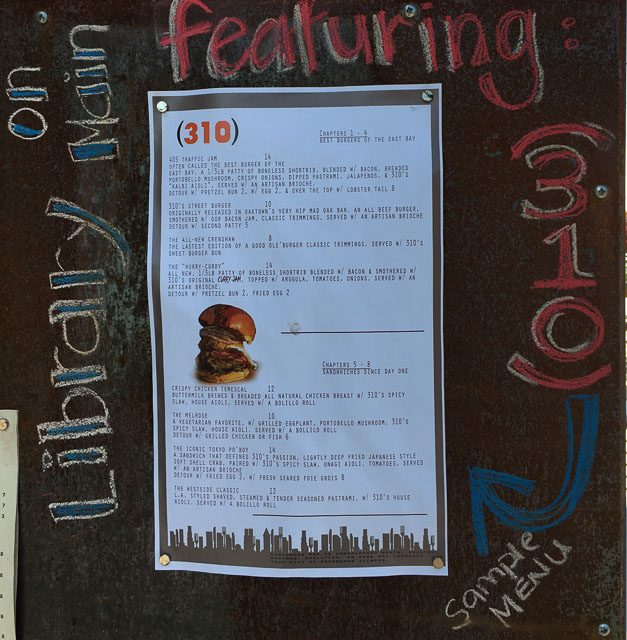 featuring:
on
Library Main
(310)
(310)
CHAPTERS 1 - 4
BEST BURGERS OF THE EAST BAY
405 TRAFFIC JAM 14
OFTEN CALLED THE BEST BURGER OF THE
EAST BAY. A 1/3LB PATTY OF BONELESS SHORTRIB, BLENDED W/ BACON, BREADED
PORTOBELLO MUSHROOM, CRISPY ONIONS, DIPPED PASTRAMI, JALAPENOS, & 310'S
"KALBI AIOLI", SERVED W/ AN ARTISAN BRIOCHE.
DETOUR W/ PRETZEL BUN 2, W/ EGG 2, & OVER THE TOP W/ LOBSTER TAIL 8
310'S STREET BURGER 10
ORIGINALLY RELEASED IN OAKTOWN'S VERY HIP MAD OAK BAR, AN ALL BEEF BURGER,
SMOTHERED W/ OUR BACON JAM, CLASSIC TRIMMINGS, SERVED W/ AN ARTISAN BRIOCHE
DETOUR W/ SECOND PATTY 3
THE ALL-NEW CRENSHAW 8
THE LASTEST EDITION OF A GOOD OLE'BURGER CLASSIC TRIMMINGS, SERVED W/ 310'S
SWEET BURGER BUN
THE "HURRY-CURRY" 14
ALL NEW, 1/3LB PATTY OF BONELESS SHORTRIB BLENDED W/ BACON & SMOTHERED W/
310'S ORIGINAL CURRY JAM, TOPPED W/ ARUGULA, TOMATOES, ONIONS, SERVED W/ AN
ARTISAN BRIOCHE.
DETOUR W/ PRETZEL BUN 2, FRIED EGG 2
CHAPTERS 5 - 8
SANDWHICHES SINCE DAY ONE
CRISPY CHICKEN TEMESCAL 12
BUTTERMILK BRINED & BREADED ALL NATURAL CHICKEN BREAST W/ 310'S SPICY
SLAW, HOUSE AIOLI, SERVED W/ A BOLILLO ROLL
THE MELROSE 10
A VEGETARIAN FAVORITE, W/ GRILLED EGGPLANT, PORTOBELLO MUSHROOM, 310'S
SPICY SLAW, HOUSE AIOLI, SERVED W/ A BOLILLO ROLL
DETOUR W/ GRILLED CHICKEN OR FISH 6
THE ICONIC TOKYO PO'BOY 14
A SANDWICH THAT DEFINES 310'S PASSION, LIGHTLY DEEP FRIED JAPANESE STYLE
SOFT SHELL CRAB, PAIRED W/ 310'S SPICY SLAW, UNAGI AIOLI, TOMATOES, SERVED
W/ AN ARTISAN BRIOCHE
DETOUR W/ FRIED EGG 2, W/ FRESH SEARED FOIE GROIS 8
THE WESTSIDE CLASSIC 12
L.A. STYLED SHAVED, STEAMED & TENDER SEASONED PASTRAMI, W/ 310'S HOUSE
AIOLI, SERVED W/ A BOLILLO ROLL
Sample
MENU